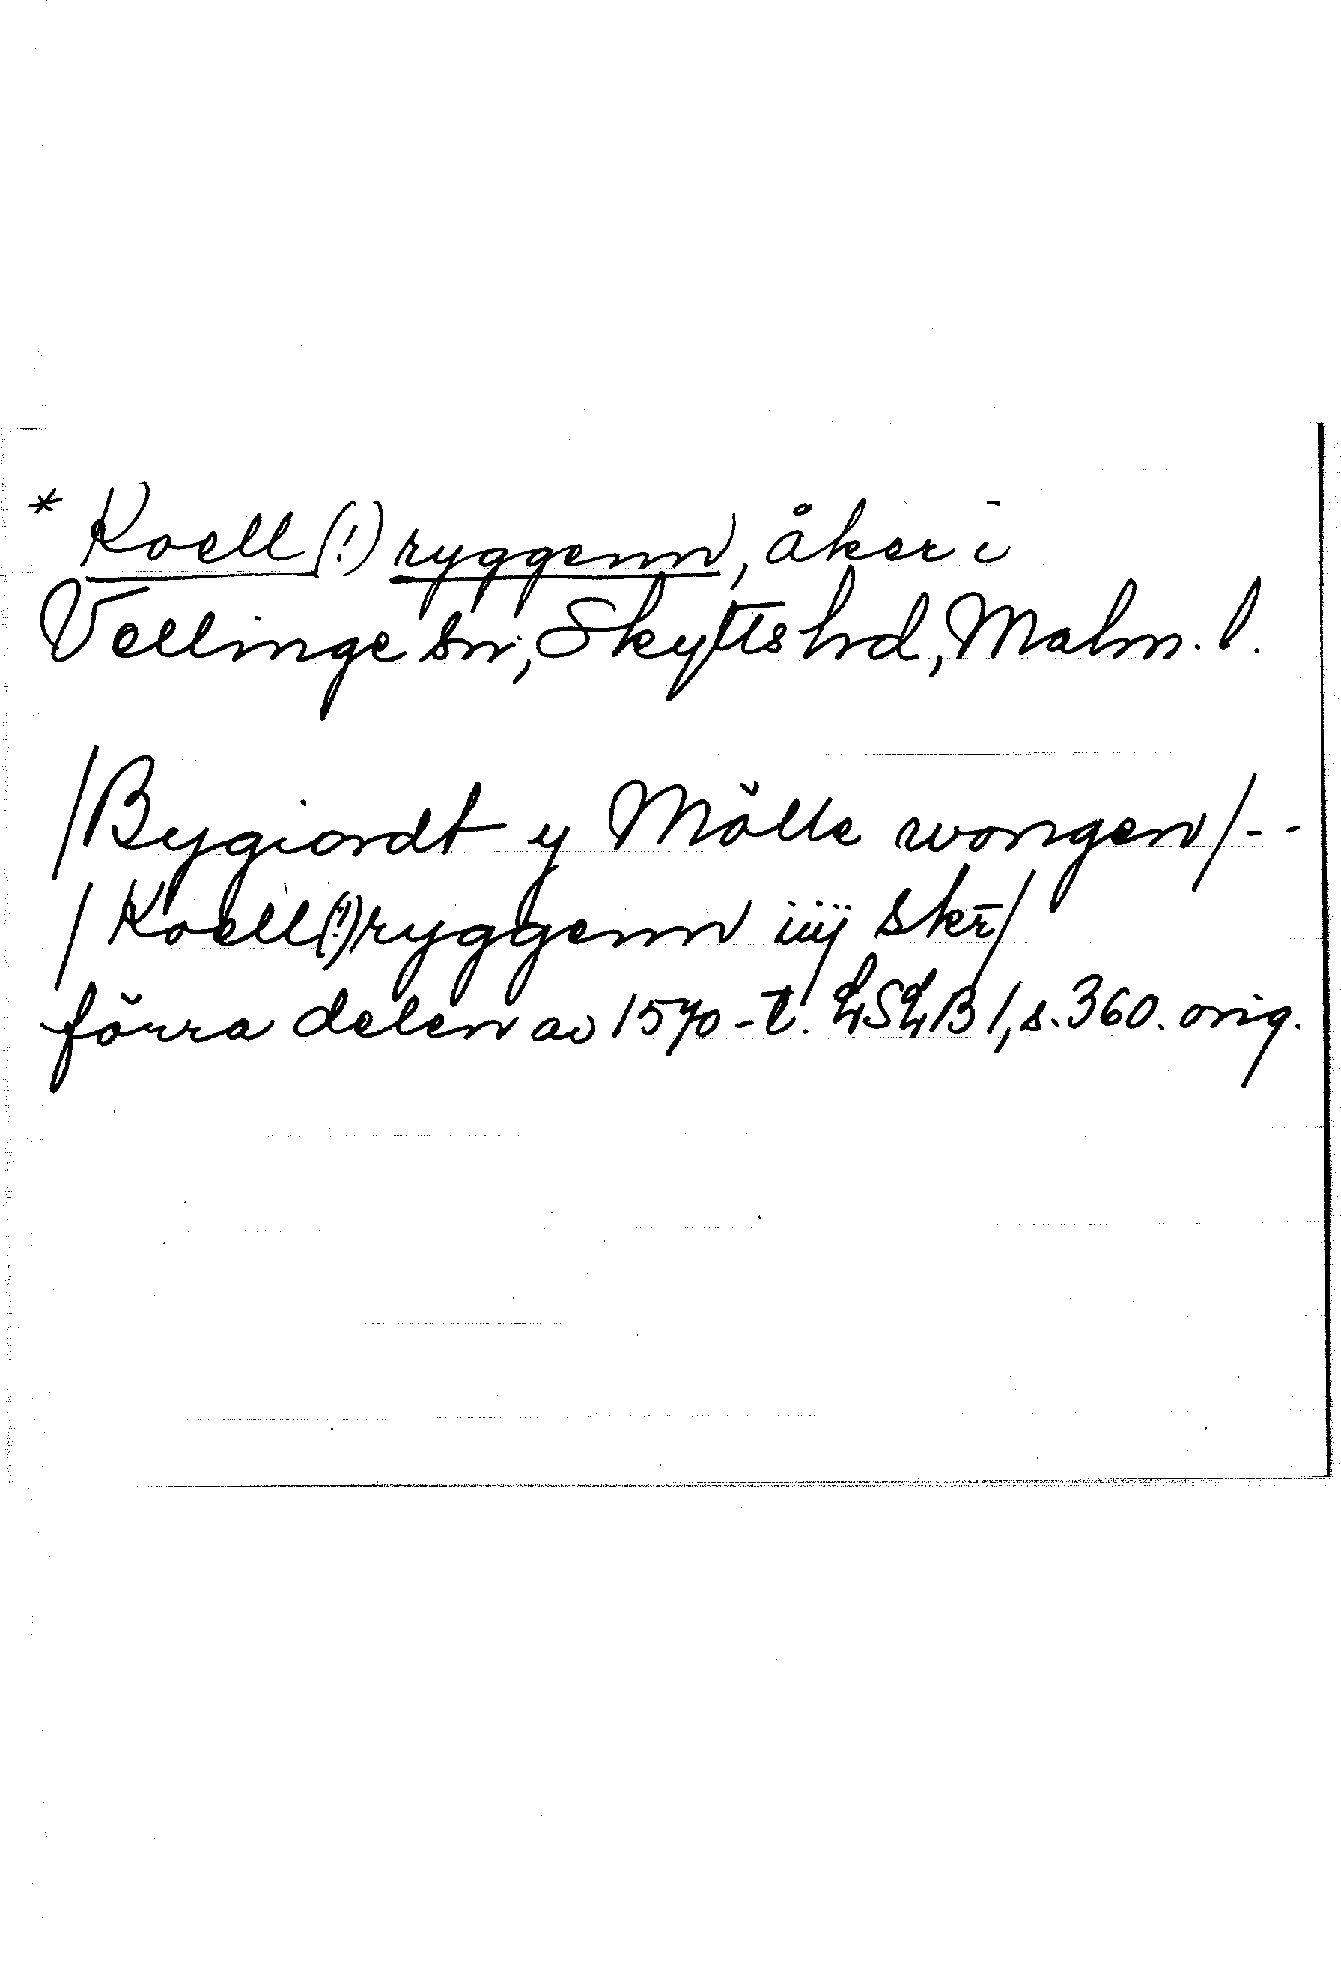 * Koell(!)ryggenn, åker i
Vellinge sn, Skytts hd, Malm. l.
/Bygiordt y Mölle wongen/--
/Koell(!)ryggenn iiij skr̄/
förra delen av 1570-t. LSLB 1, s. 360. orig.